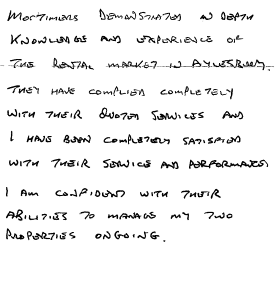 MORTIMERS DEMONSTRATED IN DEPTH
KNOWLEDGE AND EXPERIENCE OF
THE RENTAL MARKET IN AYLESBURY.
THEY HAVE COMPLIED COMPLETELY
WITH THEIR QUOTED SERVICES AND
I HAVE BEEN COMPLETELY SATISFIED
WITH THEIR SERVICE AND PERFORMANCE
I AM CONFIDENT WITH THEIR
ABILITIES TO MANAGE MY TWO
PROPERTIES ONGOING.